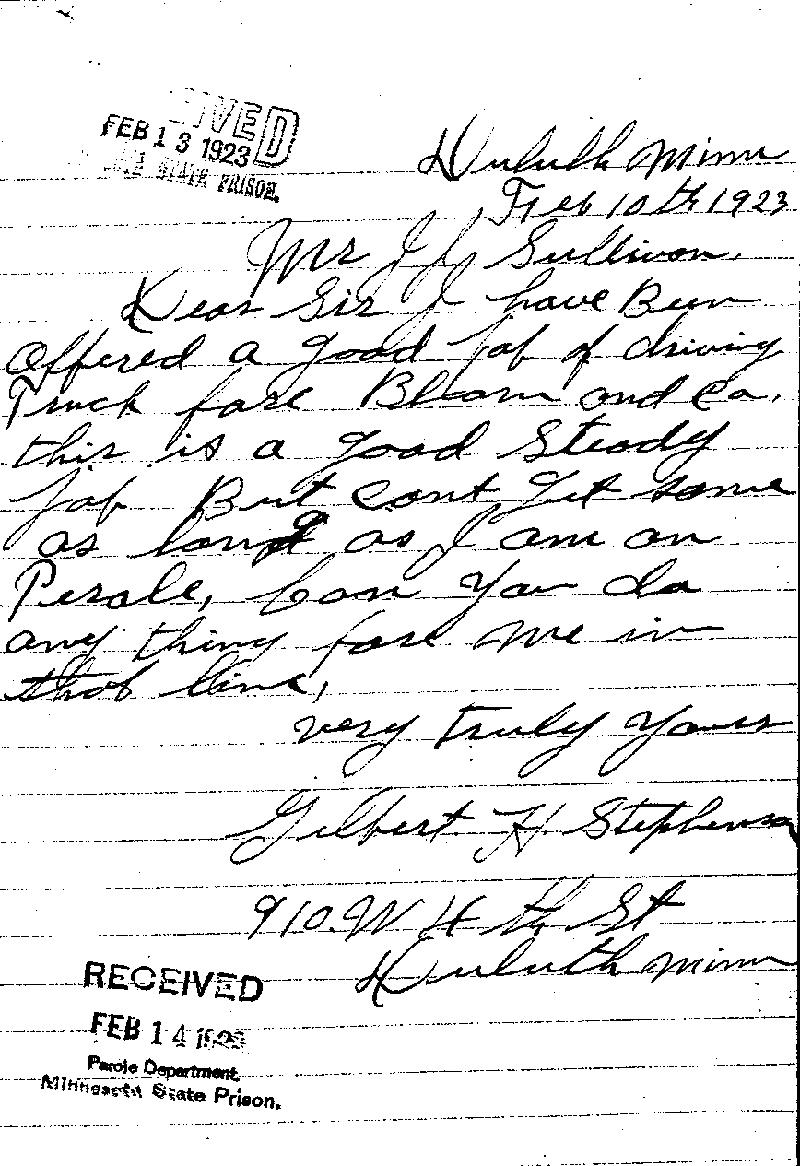 FEB 13 1923
STATE PRISON.
Duluth Minn
Feb 10th 1923
Mr J J Sullivan.
Dear Sir I have Been
offered a good Job of driving
Truck fore and Co.
this is a good Steady
Job But cant get same
as long as I am on
Perole, Can you do
any thing fore me in
that line,
very truly yours
Gilbert H. Stephenson
910. W 4 th St
Duluth Minn
RECEIVED
FEB 14 1923
Parole Department,
Minnesota State Prison.